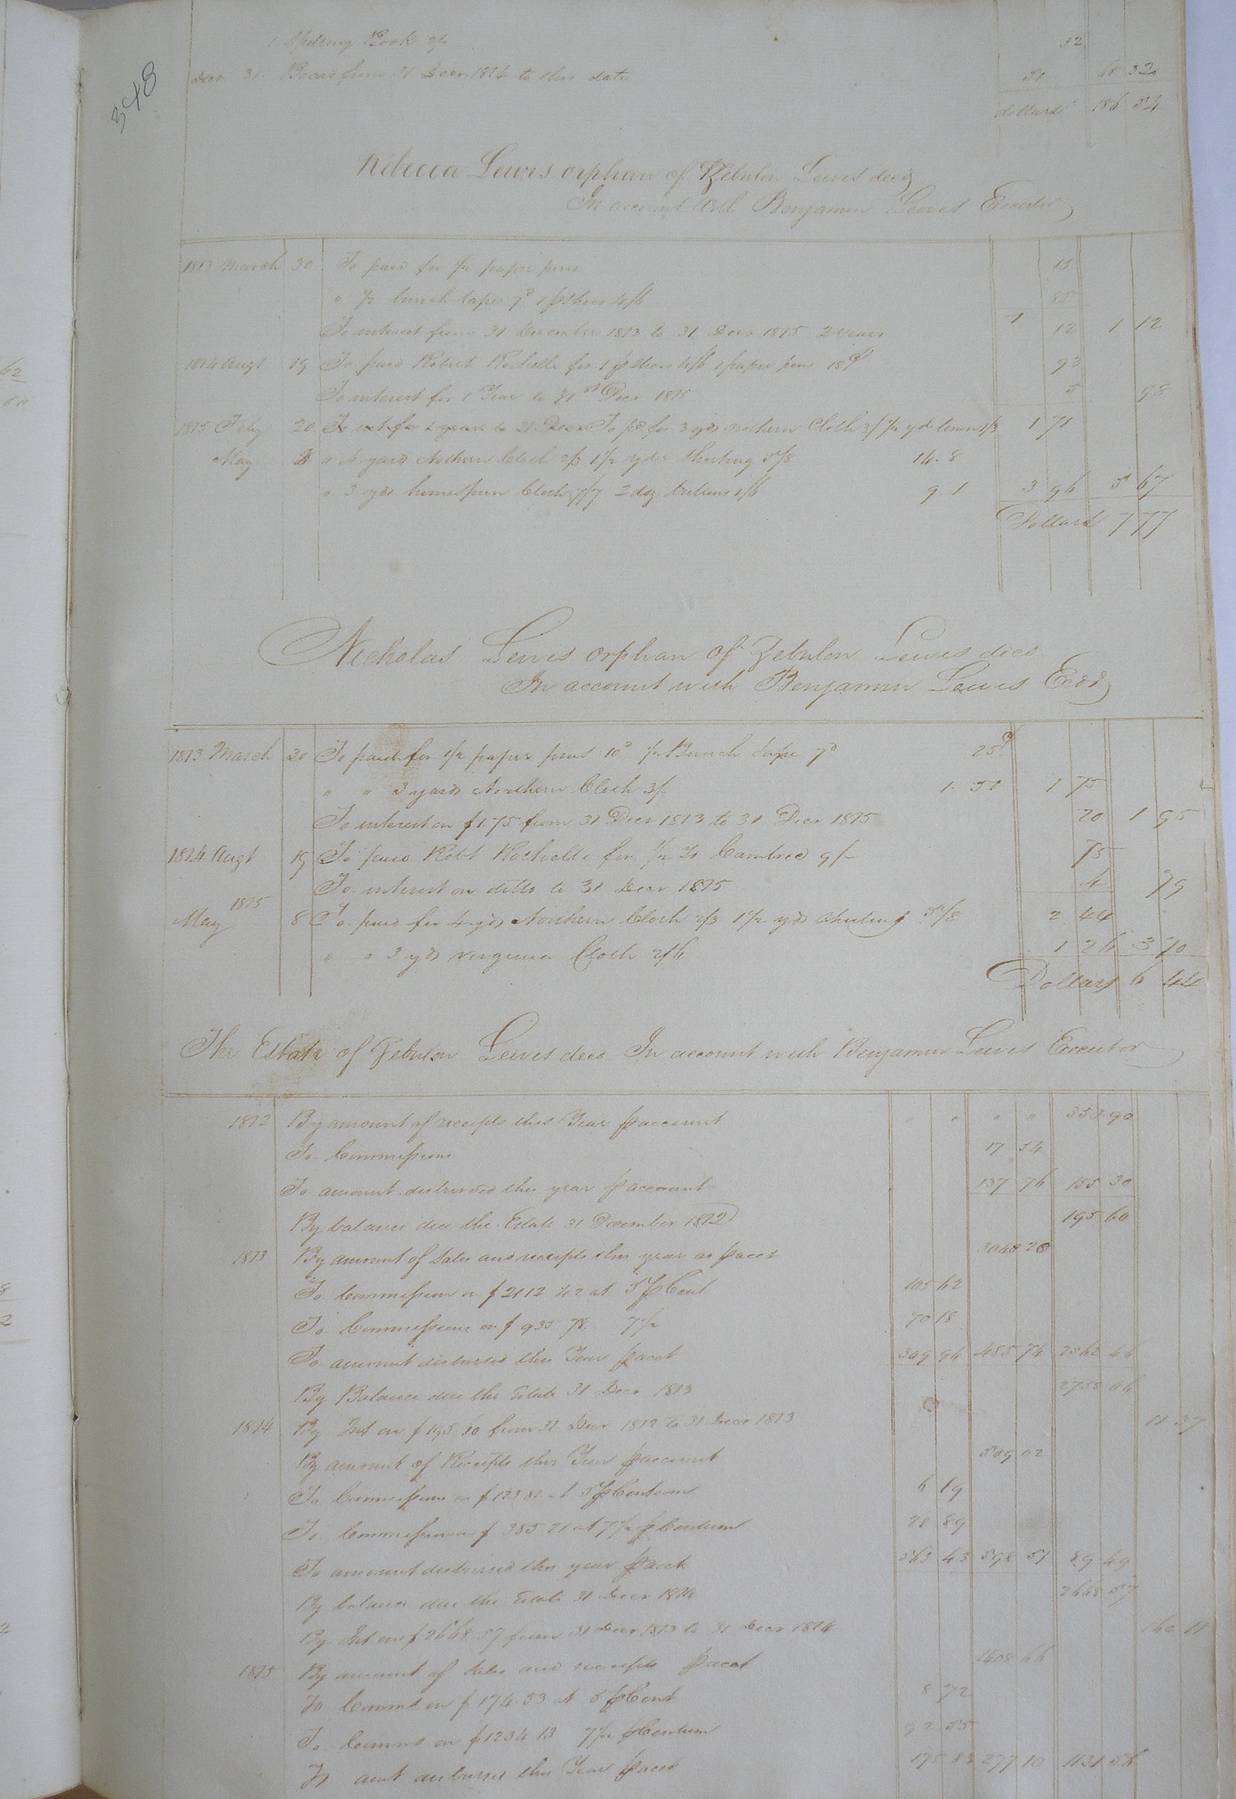 348
1 Spelling Book 2/ 32
Decr 31 Board from 31 Decr 1814 to this date 51 68 32
dollars 186 54
Rebecca Lewis orphan of Zebulon Lewis decd
In account with Benjamin Lewis Executor
1813 March 30 To paid for 1/2 paper pins 15
" 1/2 bunch tapes 7d 1 pr shoes 4/6 85
To interest from 31 December 1813 to 31 Decr 1815 2 years 12 1 12
1814 Augt 19 To paid Robert Rochelle for 1 pr shoes 4/6 1 paper pins 93
To interest for 1 Year to 31st Decr 1815 5 98
1815 Feby 20 To pd for 3 yds Northern Cloth 3/ 1 71
May " 4 yards Northern Cloth 2/3 1 1/2 yds Sheeting 5/8 14.8
" 3 yds homespun Cloth 2 doz buttons 1/6 9.1 3 96 5 67
Dollars 7 77
Nicholas Lewis orphan of Zebulon Lewis decd
In account with Benjamin Lewis Exr
1813 March 30 To paid for 1/2 paper pins 10d 1/2 Bunch tape 7d 25
" " 3 yards Northern Cloth 3/ 1.50 1 75
To interest on $1.75 from 31 Decr 1813 to 31 Decr 1815 20 1 95
1814 Augt 19 To paid Robt Rochelle for 1/2 yd Cambric 9/ 75
To interest on ditto to 31 Decr 1815 4 79
1815
May 8 To paid for 4 yds Northern Cloth 2/3 1 1/2 yds Sheeting 5/8 2 44
" " 3 yds Virginia Cloth 2/6 1 26 3 70
Dollars 6 44
The Estate of Zebulon Lewis decd In account with Benjamin Lewis Executor
1812 By amount of receipts this Year pr account " " " " 350.90
To Commissions 17 54
To amount disbursed this year pr account 137 76 155 30
By balance due the Estate 31 December 1812 195 60
1813 By amount of Sales and receipts this year as pr acct 3048 20
To Commission on $2112.42 at 5 pr Cent 105 62
To Commissions on $935.78 7 1/2 70 18
To amount disbursed this Year pr acct 309 94 485 74 2562 46
By Balance due the Estate 31 Decr 1813 2758 06
1814 By Int on $195.60 from 31 Decr 1812 to 31 Decr 1813 11 37
By amount of Receipts this Year pr account 509 02
To Commissions on $123.81 at 5 pr Centum 6 19
To Commission on $385.21 at 7 1/2 pr Centum 28 89
To amount disbursed this year pr acct 563 43 598 51 89 49
By balance due the Estate 31 Decr 1814 2668 57
By Int on $2668.57 from 31 Decr 1813 to 31 Decr 1814 160 11
1815 By amount of Sales and receipts pr acct 1408 66
To Comms on $174.53 at 5 pr Cent 8 72
To Comms on $1234.13 7 1/2 pr Centum 92 55
To amt disbursed this Year pr acct 175 83 277 10 1131 56